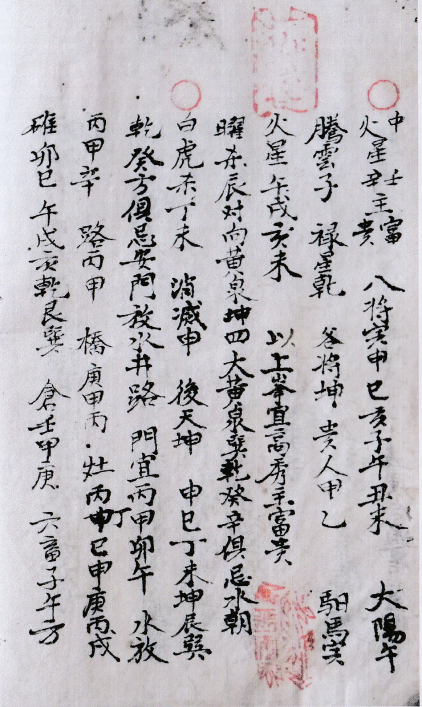 中 火星辛壬主富貴 八將寅甲巳亥子午丑未 太陽午
騰雲子 祿星乾 谷將坤 貴人甲乙 馹馬寅
火星午戌亥未 以上峯宜高秀主富貴
曜杀辰对向黃泉坤四大黃泉巽乾癸辛俱忌水朝
白虎杀丁未 消滅申 後天坤 申巳丁未坤辰巽
乾癸方俱忌安門放水井路 門宜丙甲卯午 水放
丙甲辛 路丙甲 橋庚甲丙 灶丙丁巳申庚丙戌
碓卯巳午戌亥乾艮巽 倉壬甲庚 六畜子午方